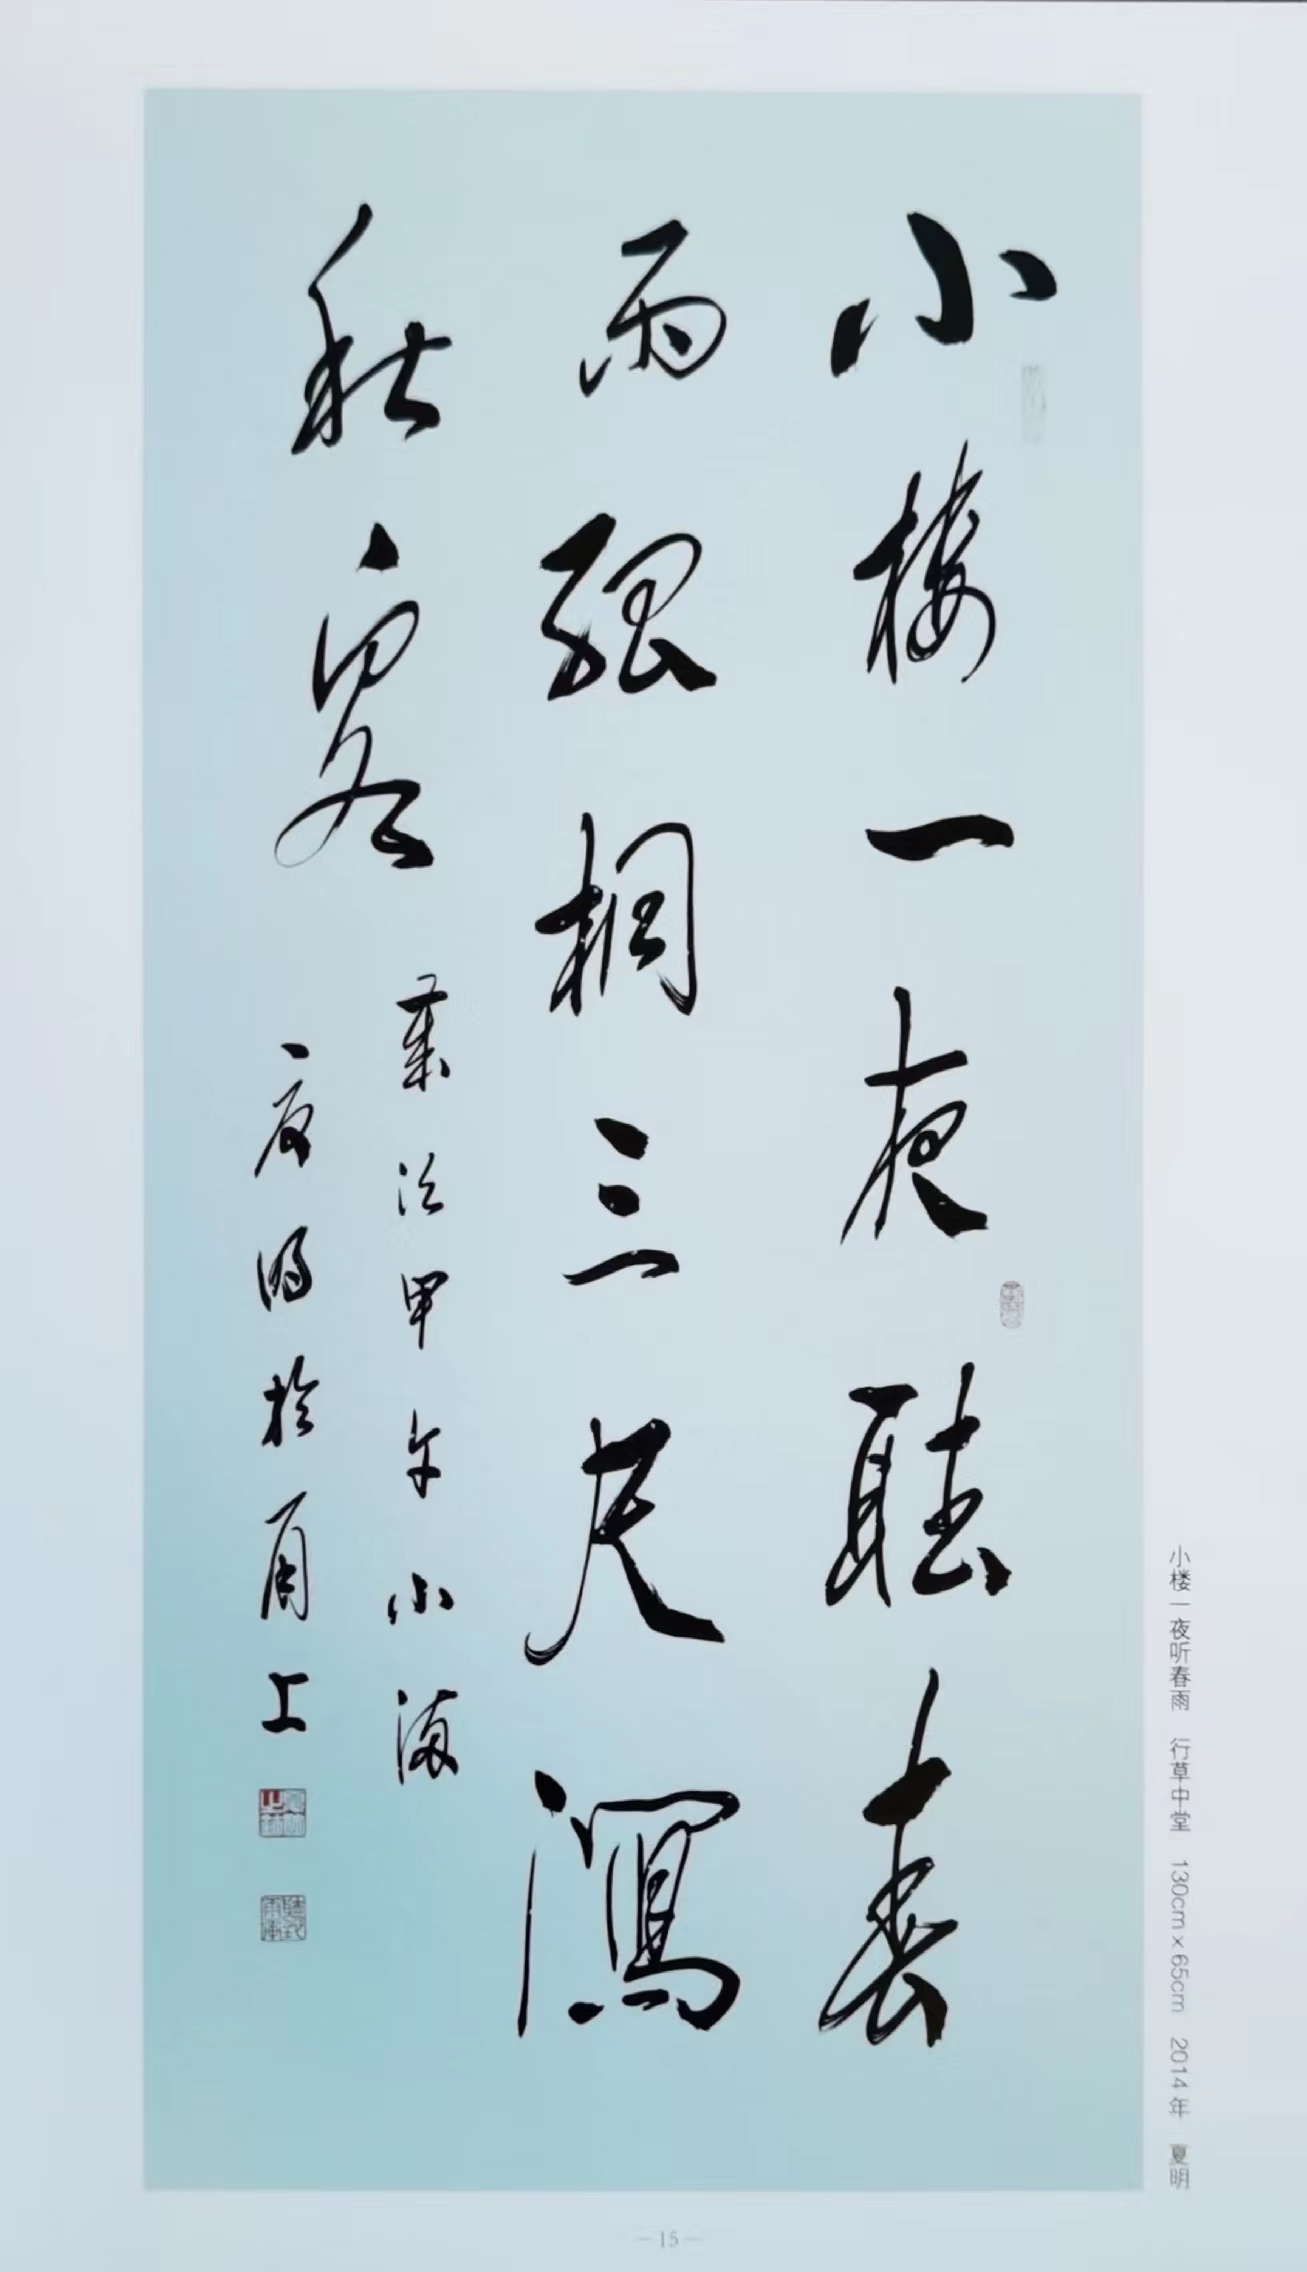 小樓一夜聽春
雨孤桐三尺瀉
秋
甲午小滿
夏明於甬上
小楼一夜听春雨 行草中堂 130cm×65cm 2014年 夏明
—15—